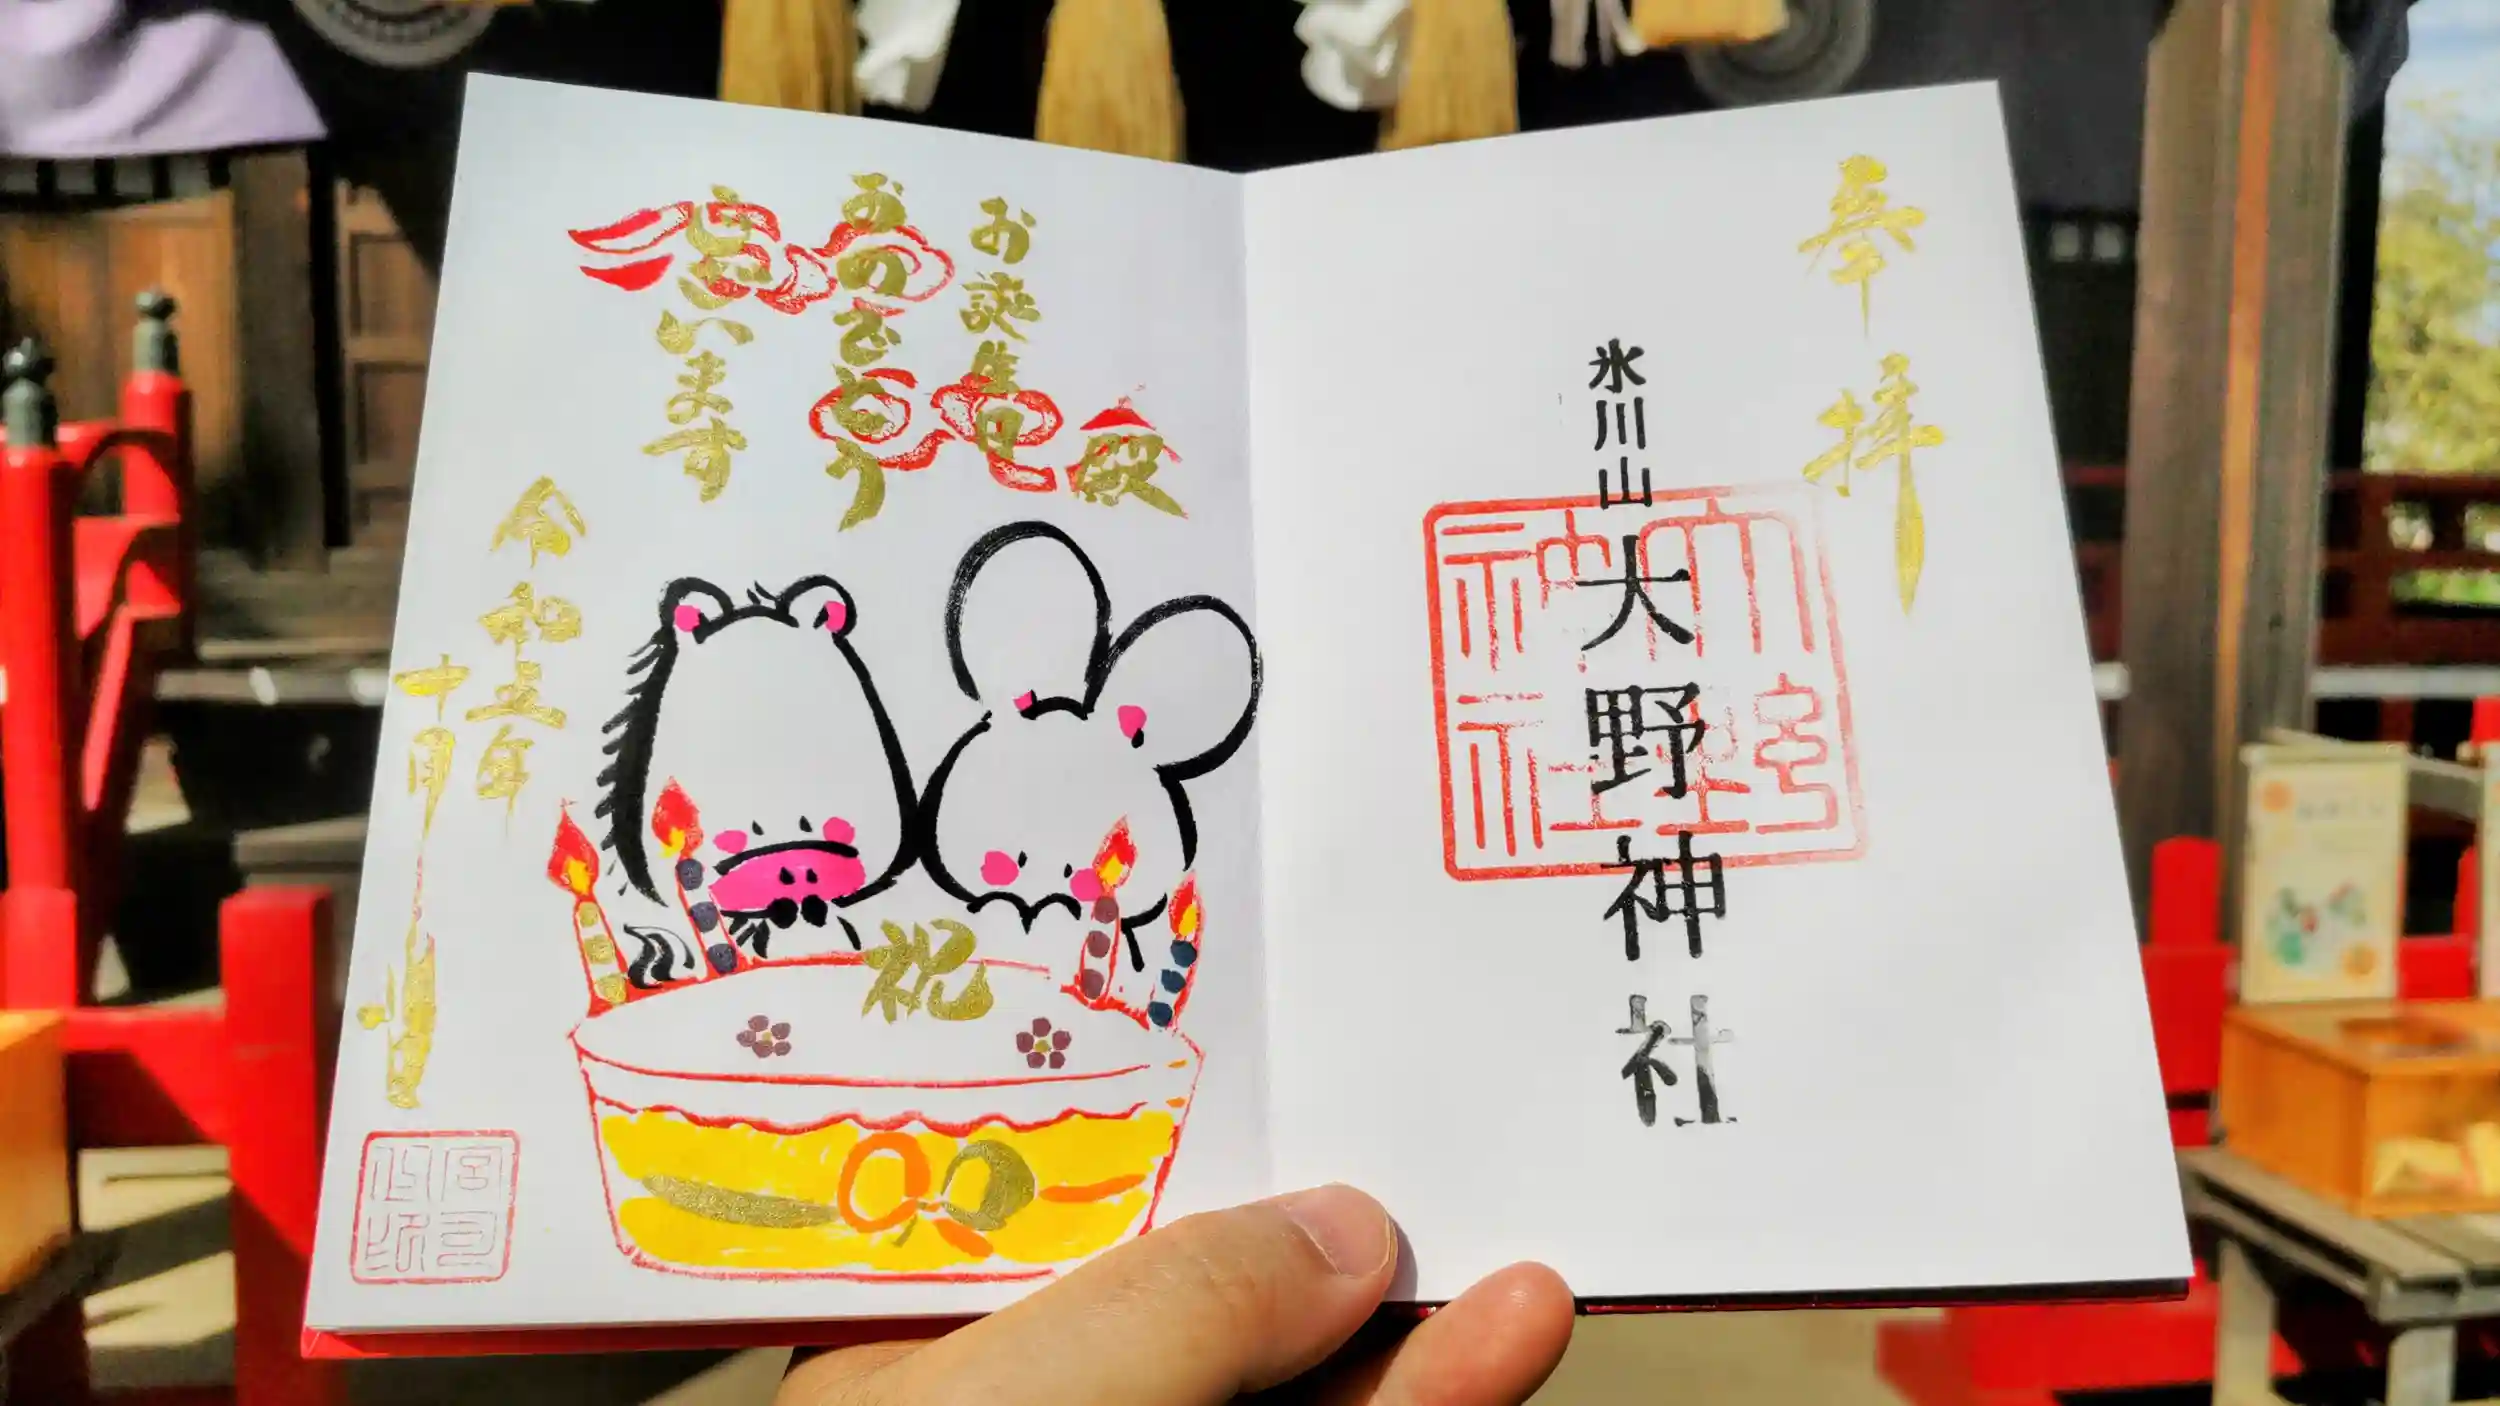 奉拝
氷川山
大野神社
殿
お誕生日
おめでとう
ございます
祝
令和五年
十月
大野
神社